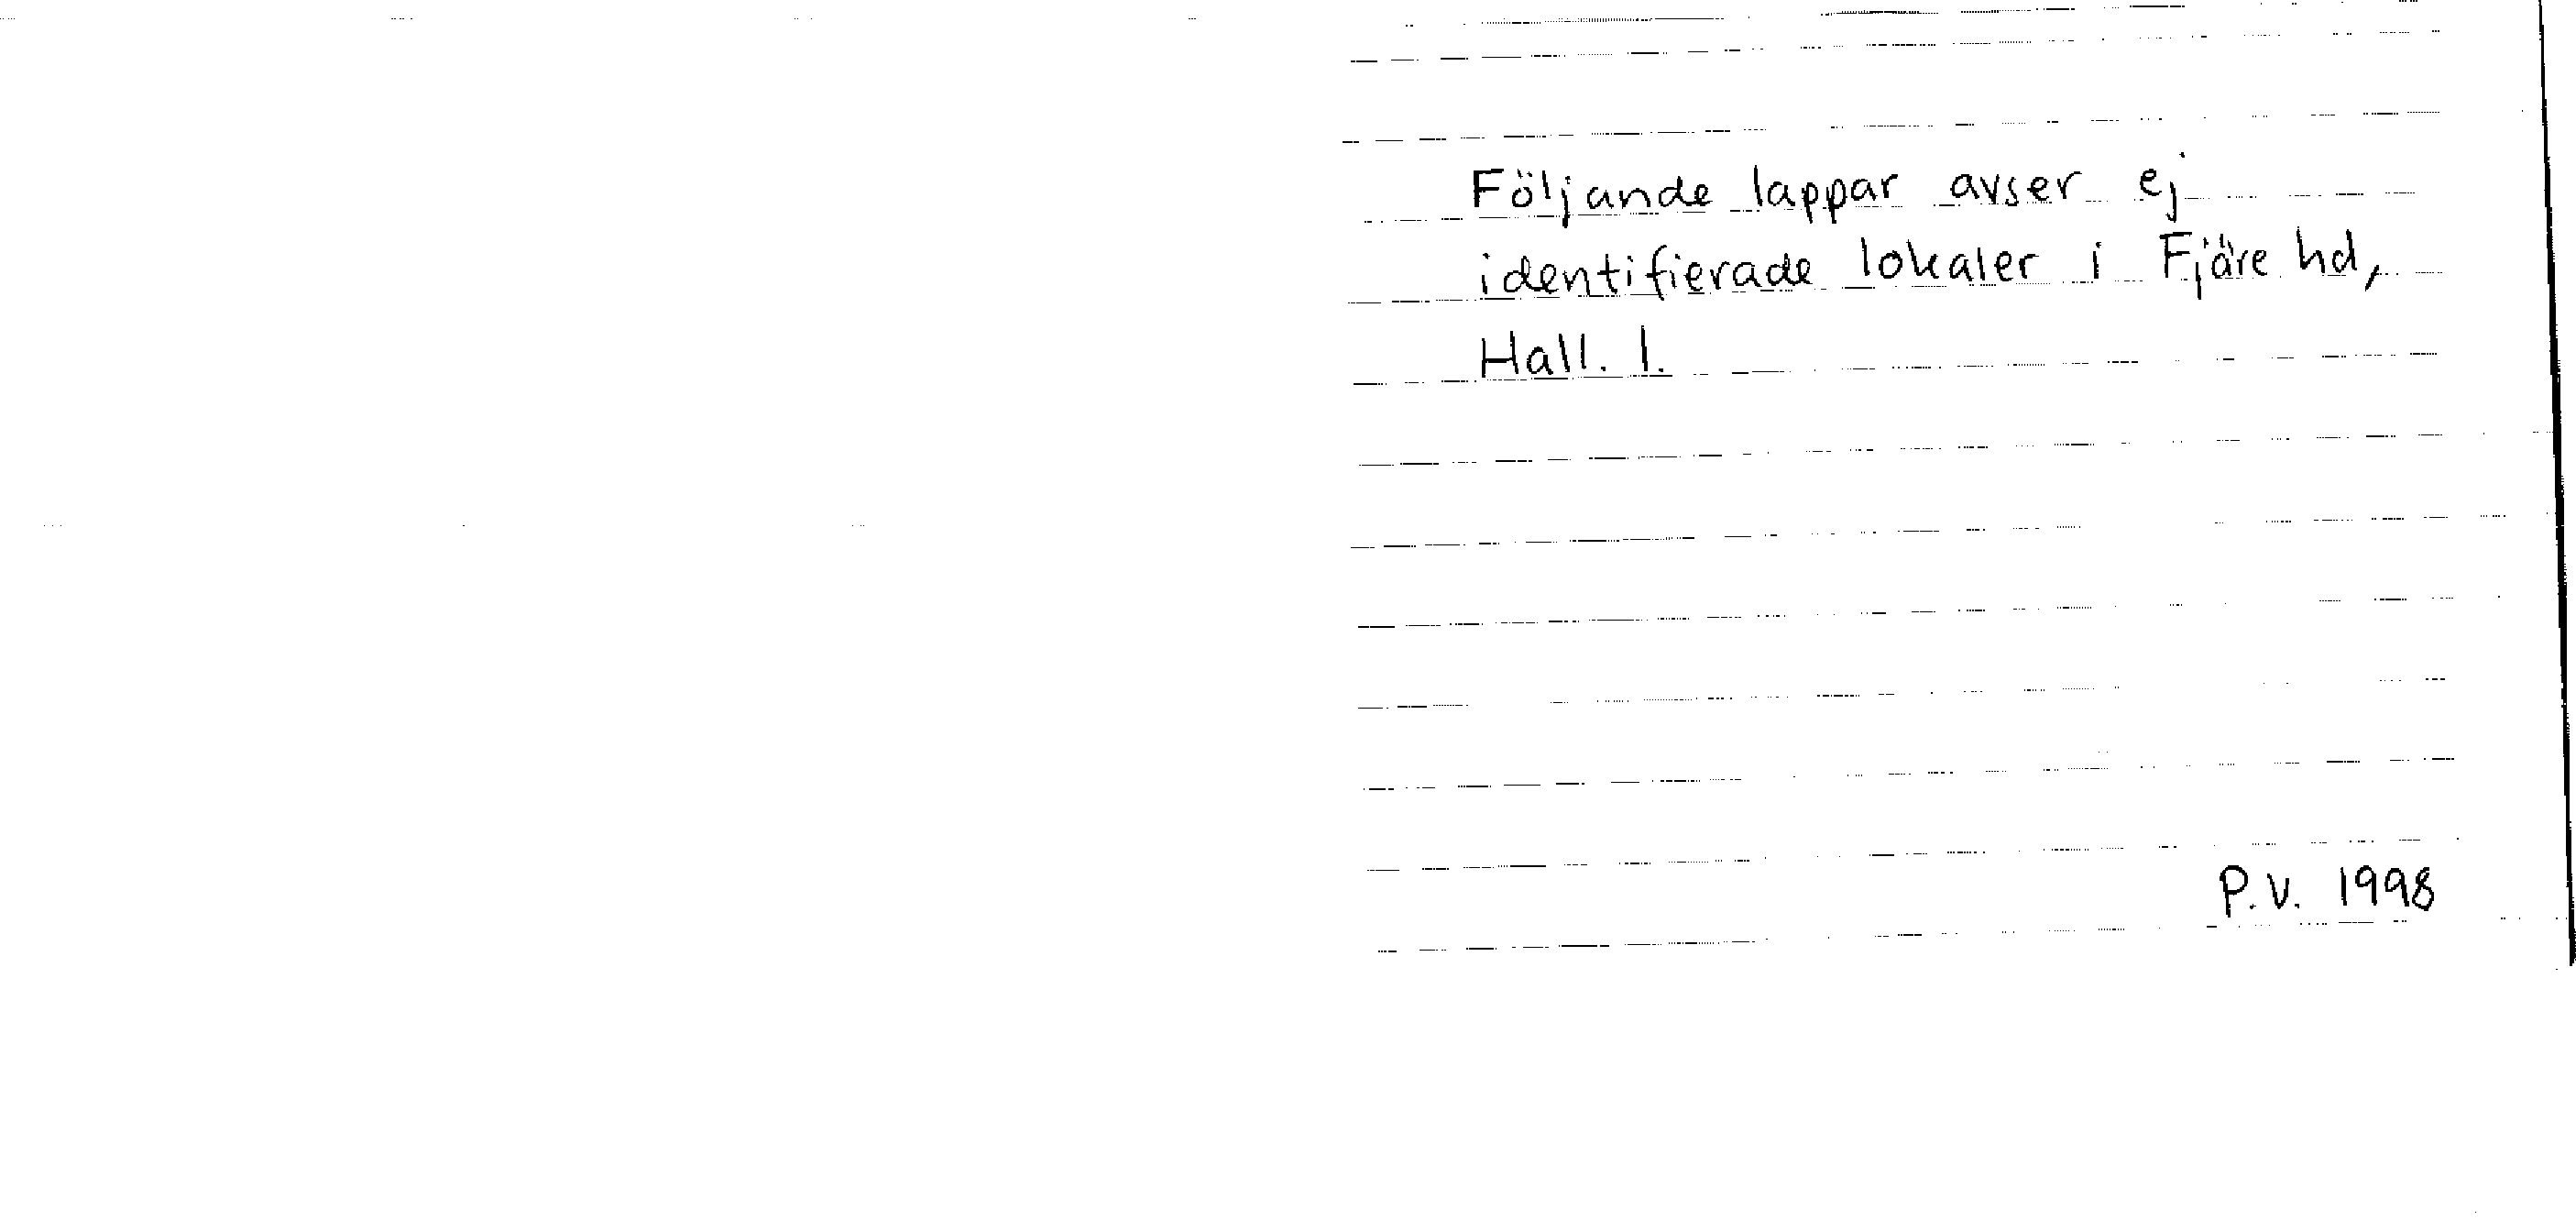 Följande lappar avser ej
identifierade lokaler i Fjäre hd,
Hall. l.
P.V. 1998